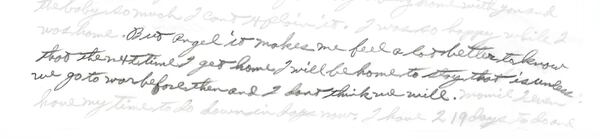 the baby so much I cant explain it. I was so happy while I
was home. But Angel it makes me feel a lot better to know
that the next time I get home I will be home to stay that is unless
we go to war before then and I dont think we will. even
have my time to do down in days now. I have 219 days to do and